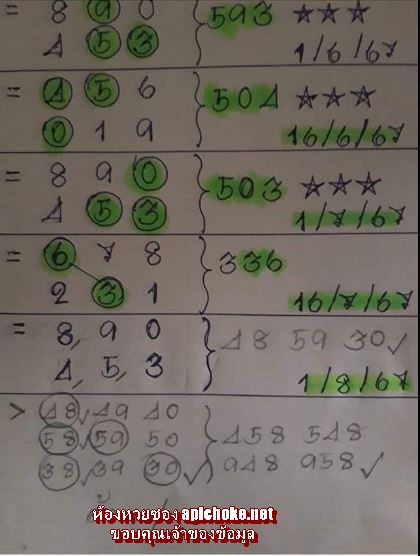 = 8 9 0 } 593 ☆☆☆
4 5 3 1/6/67
= 4 5 6 } 504 ☆☆☆
0 1 9 16/6/67
= 8 9 0 } 503 ☆☆☆
4 5 3 1/7/67
= 6 7 8 } 336
2 3 1 16/7/67
= 8, 9 0 } 48 59 30✓
4, 5, 3 1/8/67
> 48✓ 49 40
58✓ 59 50 } 458 548
38✓ 39 30✓ 948 958✓
ห้องหวยซอง apichoke.net
ขอบคุณเจ้าของข้อมูล